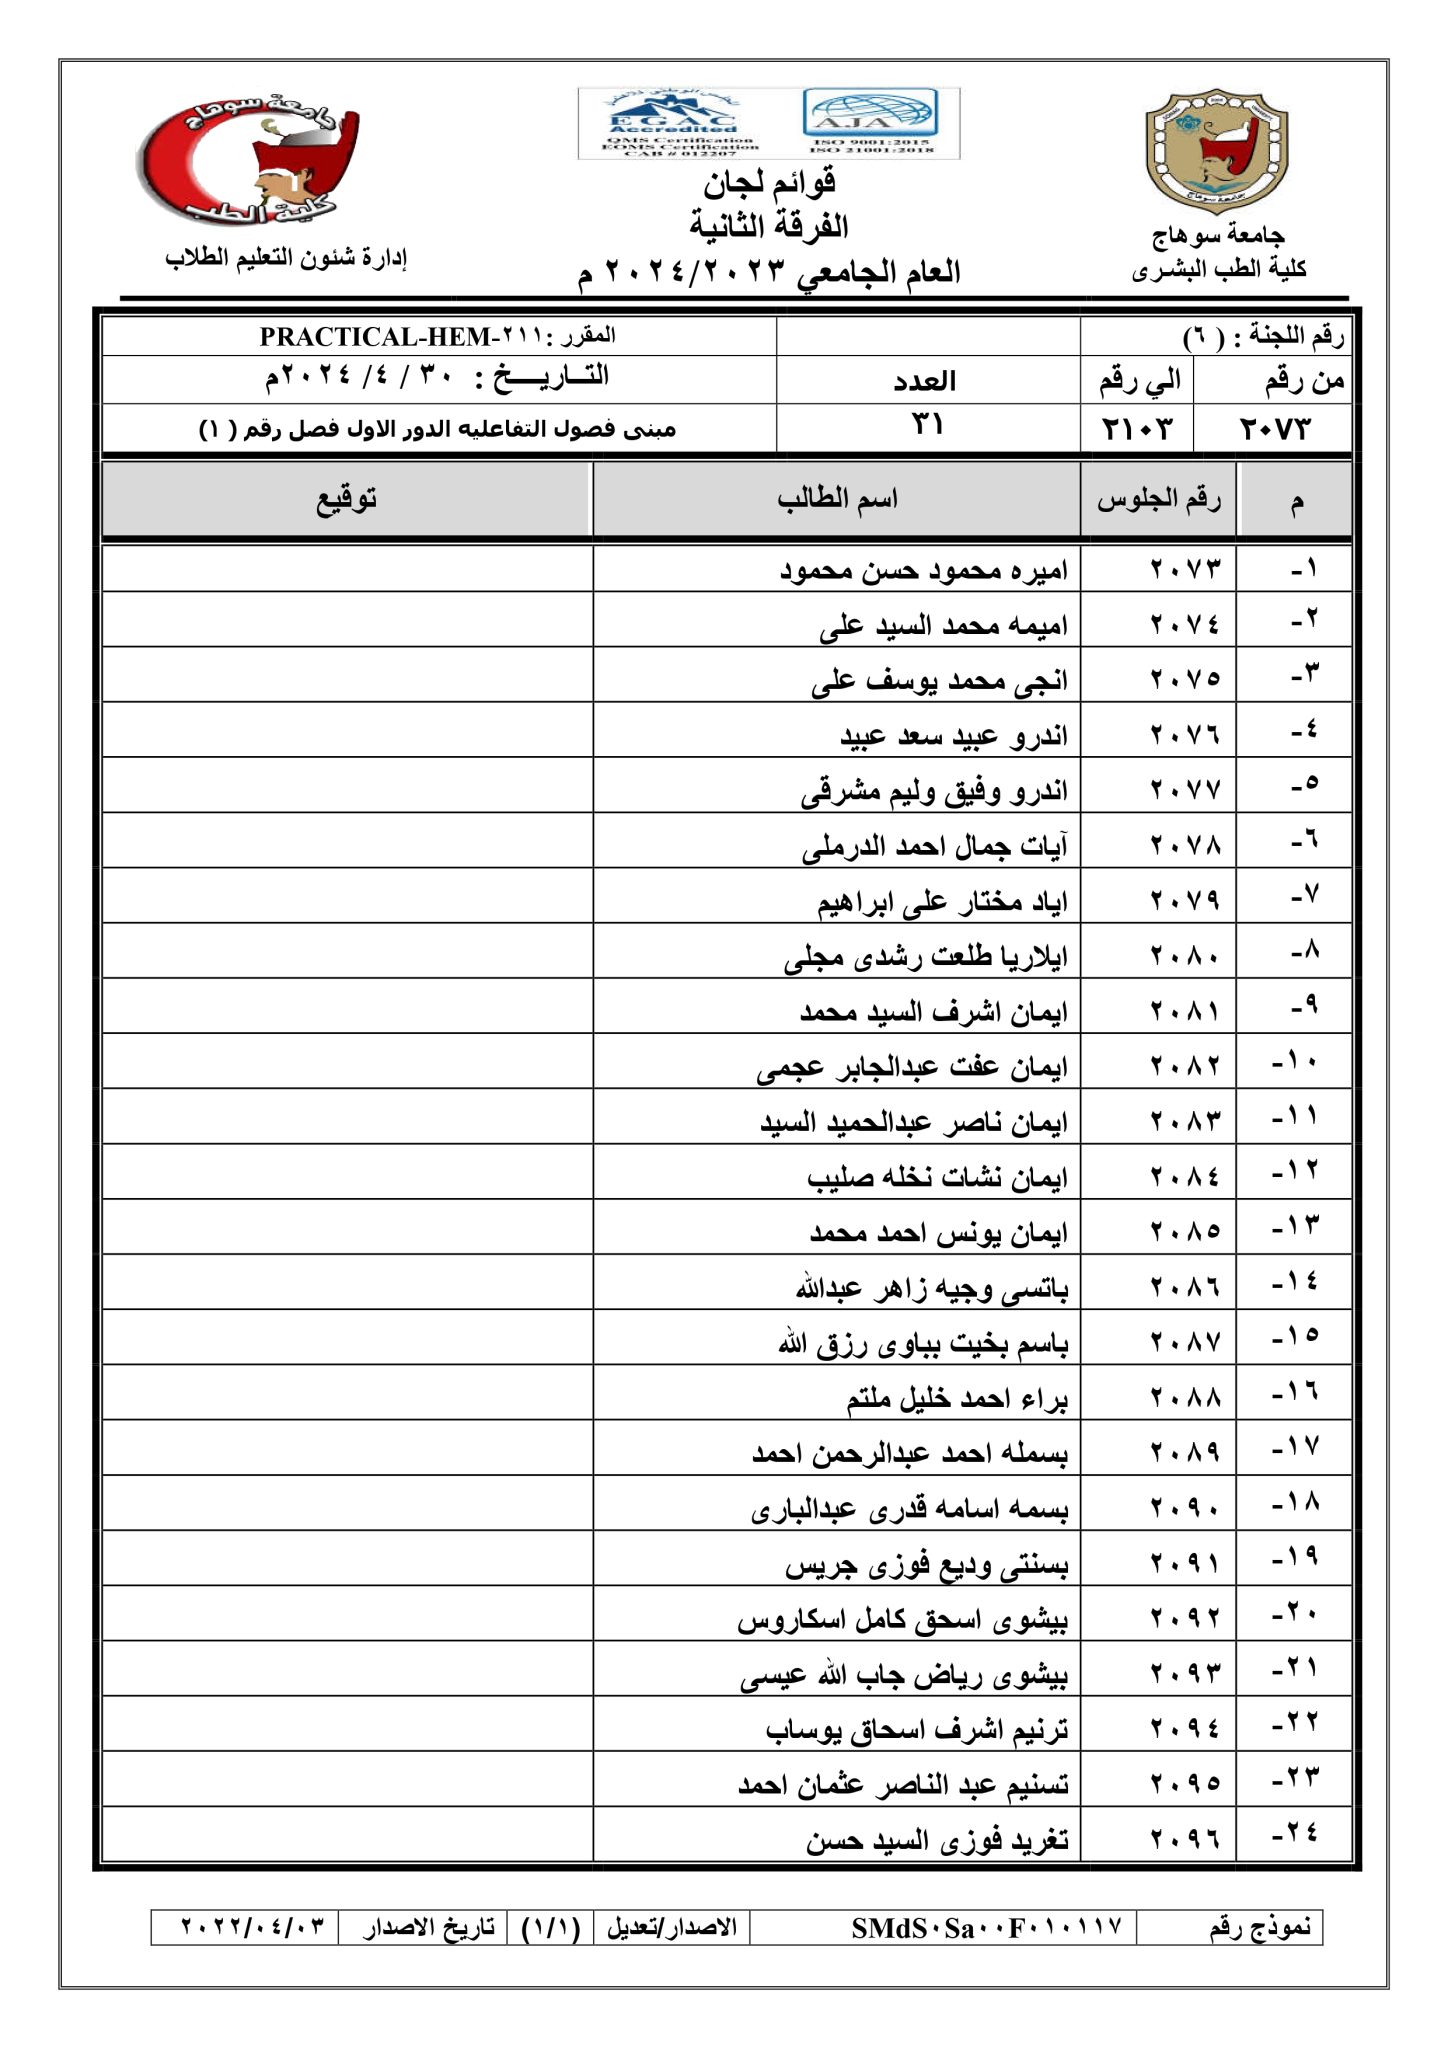 جامعة سوهاج
كلية الطب
إدارة شئون التعليم الطلاب
EGAC
Accredited
QMS Certification
EOMS Certification
CAB # 012207
AJA
ISO 9001:2015
ISO 21001:2018
قوائم لجان
الفرقة الثانية
العام الجامعي ٢٠٢٤/٢٠٢٣ م
جامعة سوهاج
جامعة سوهاج
كلية الطب البشرى
رقم اللجنة : ( ٦) المقرر :PRACTICAL-HEM-٢١١
من رقم الي رقم العدد التــاريــــخ : ٣٠ / ٤/ ٢٠٢٤م
٢٠٧٣ ٢١٠٣ ٣١ مبنى فصول التفاعليه الدور الاول فصل رقم ( ١)
م رقم الجلوس اسم الطالب توقيع
١- ٢٠٧٣ اميره محمود حسن محمود
٢- ٢٠٧٤ اميمه محمد السيد على
٣- ٢٠٧٥ انجى محمد يوسف على
٤- ٢٠٧٦ اندرو عبيد سعد عبيد
٥- ٢٠٧٧ اندرو وفيق وليم مشرقى
٦- ٢٠٧٨ آيات جمال احمد الدرملى
٧- ٢٠٧٩ اياد مختار على ابراهيم
٨- ٢٠٨٠ ايلاريا طلعت رشدى مجلى
٩- ٢٠٨١ ايمان اشرف السيد محمد
١٠- ٢٠٨٢ ايمان عفت عبدالجابر عجمى
١١- ٢٠٨٣ ايمان ناصر عبدالحميد السيد
١٢- ٢٠٨٤ ايمان نشات نخله صليب
١٣- ٢٠٨٥ ايمان يونس احمد محمد
١٤- ٢٠٨٦ باتسى وجيه زاهر عبدالله
١٥- ٢٠٨٧ باسم بخيت بباوى رزق الله
١٦- ٢٠٨٨ براء احمد خليل ملتم
١٧- ٢٠٨٩ بسمله احمد عبدالرحمن احمد
١٨- ٢٠٩٠ بسمه اسامه قدرى عبدالبارى
١٩- ٢٠٩١ بسنتى وديع فوزى جريس
٢٠- ٢٠٩٢ بيشوى اسحق كامل اسكاروس
٢١- ٢٠٩٣ بيشوى رياض جاب الله عيسى
٢٢- ٢٠٩٤ ترنيم اشرف اسحاق يوساب
٢٣- ٢٠٩٥ تسنيم عبد الناصر عثمان احمد
٢٤- ٢٠٩٦ تغريد فوزى السيد حسن
نموذج رقم SMdS٠Sa٠٠F٠١٠١١٧ الاصدار/تعديل (١/١) تاريخ الاصدار ٢٠٢٢/٠٤/٠٣